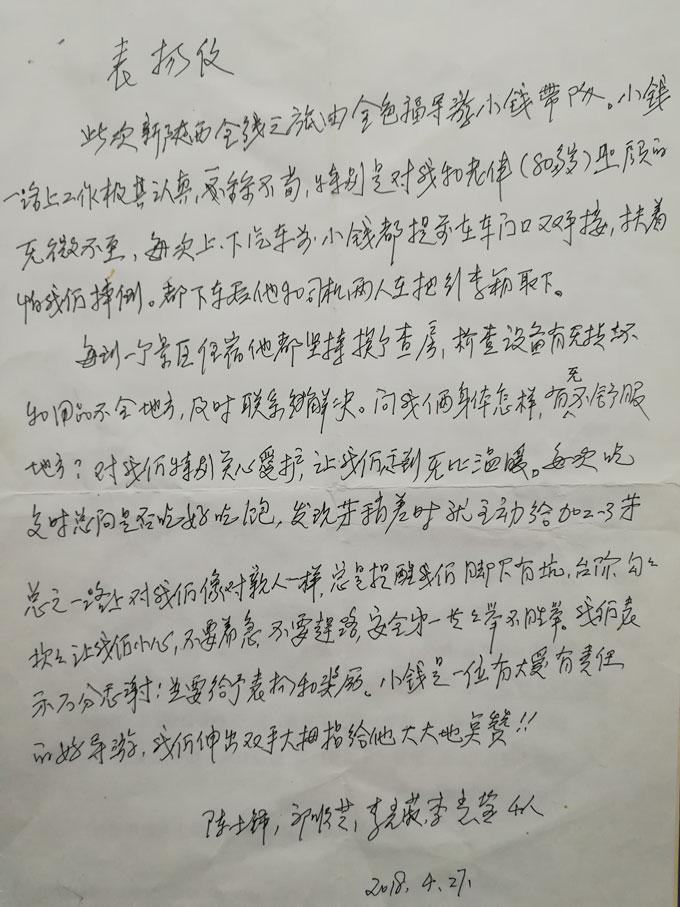 表扬信
此次新陕西全线之旅由金色福导游小钱带队。小钱
一路上工作极其认真,一丝不苟,特别是对我和老伴(80多岁)照顾的
无微不至,每次上、下汽车前小钱都提前在车门口双手接,扶着
怕我们摔倒。都下车后他和司机两人在把行李箱取下。
每到一个景区住宿他都坚持挨户查房,检查设备有无损坏
和用品不全地方,及时联系解决。问我俩身体怎样,有无不舒服
地方?对我们特别关心爱护,让我们感到无比温暖。每次吃
文时总问是否吃好吃饱,发现菜稍差时就主动给加2-3菜
总之一路上对我们像对亲人一样,总是提醒我们脚下有坑,台阶
次次让我们小心,不要着急,不要赶路,安全第一共之举不胜举。我们表
示万分感谢!并要给予表扬和奖励。小钱是一位有大爱有责任
的好导游,我们伸出双手大拇指给他大大地点赞!!
陈士锦,邱 李 李 4人
2018.4.27.